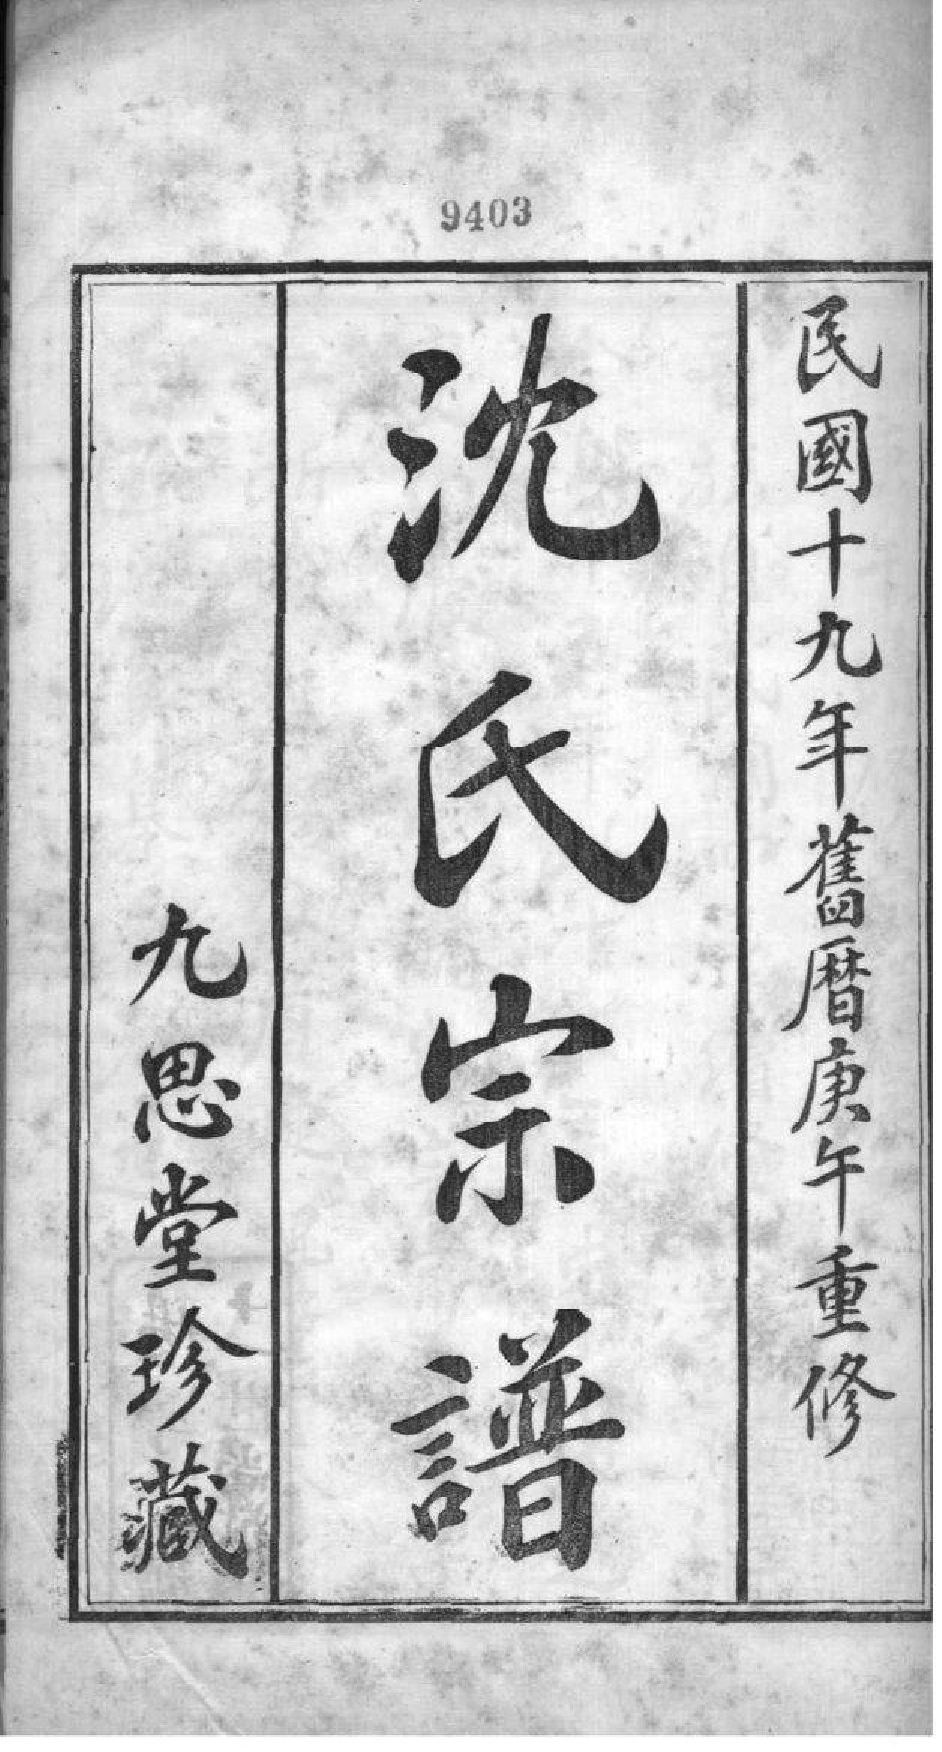 9403
民國十九年舊曆庚午重修
沈氏宗譜
九思堂珍藏